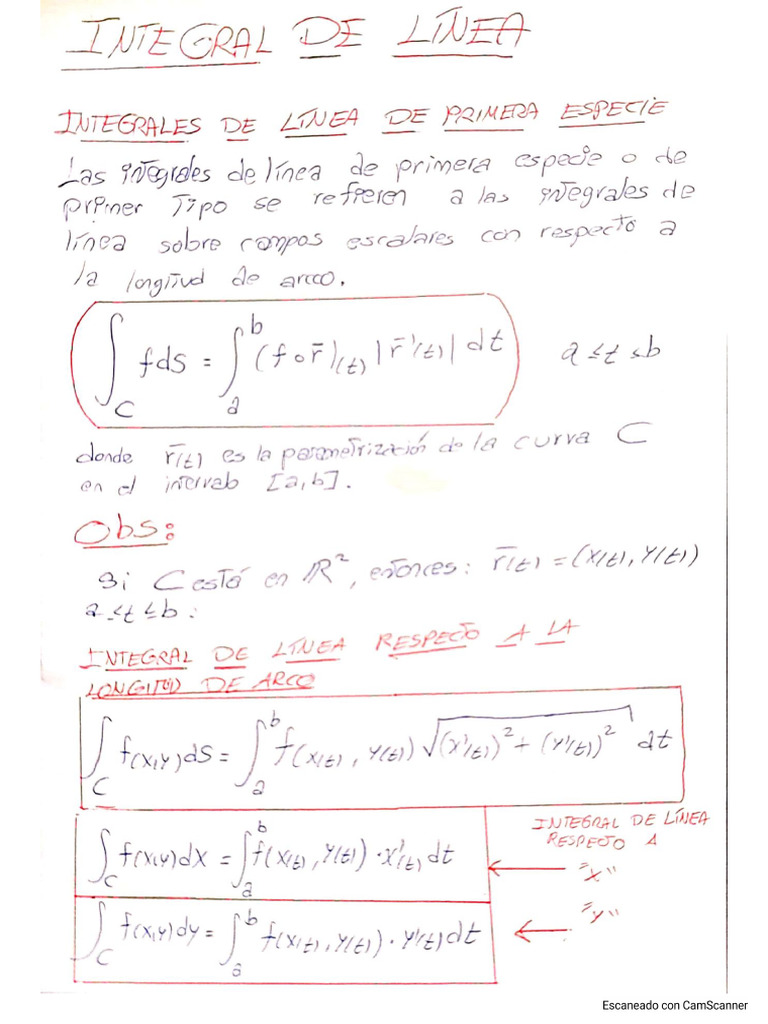 INTEGRAL DE LÍNEA
INTEGRALES DE LÍNEA DE PRIMERA ESPECIE
Las integrales de línea de primera especie o de
primer Tipo se refieren a las integrales de
línea sobre campos escalares con respecto a
la longitud de arco.
∫_C f ds = ∫_a^b (f∘r̄)(t) |r̄'(t)| dt    a ≤ t ≤ b
donde r̄(t) es la parametrización de la curva C
en el intervalo [a,b].
Obs:
Si C está en ℝ², entonces: r̄(t) = (x(t), y(t))
a ≤ t ≤ b:
INTEGRAL DE LÍNEA RESPECTO A LA
LONGITUD DE ARCO
∫_C f(x,y) ds = ∫_a^b f(x(t), y(t)) √((x'(t))² + (y'(t))²) dt
INTEGRAL DE LÍNEA
RESPECTO A
∫_C f(x,y) dx = ∫_a^b f(x(t), y(t)) · x'(t) dt ← "x"
∫_C f(x,y) dy = ∫_a^b f(x(t), y(t)) · y'(t) dt ← "y"
Escaneado con CamScanner